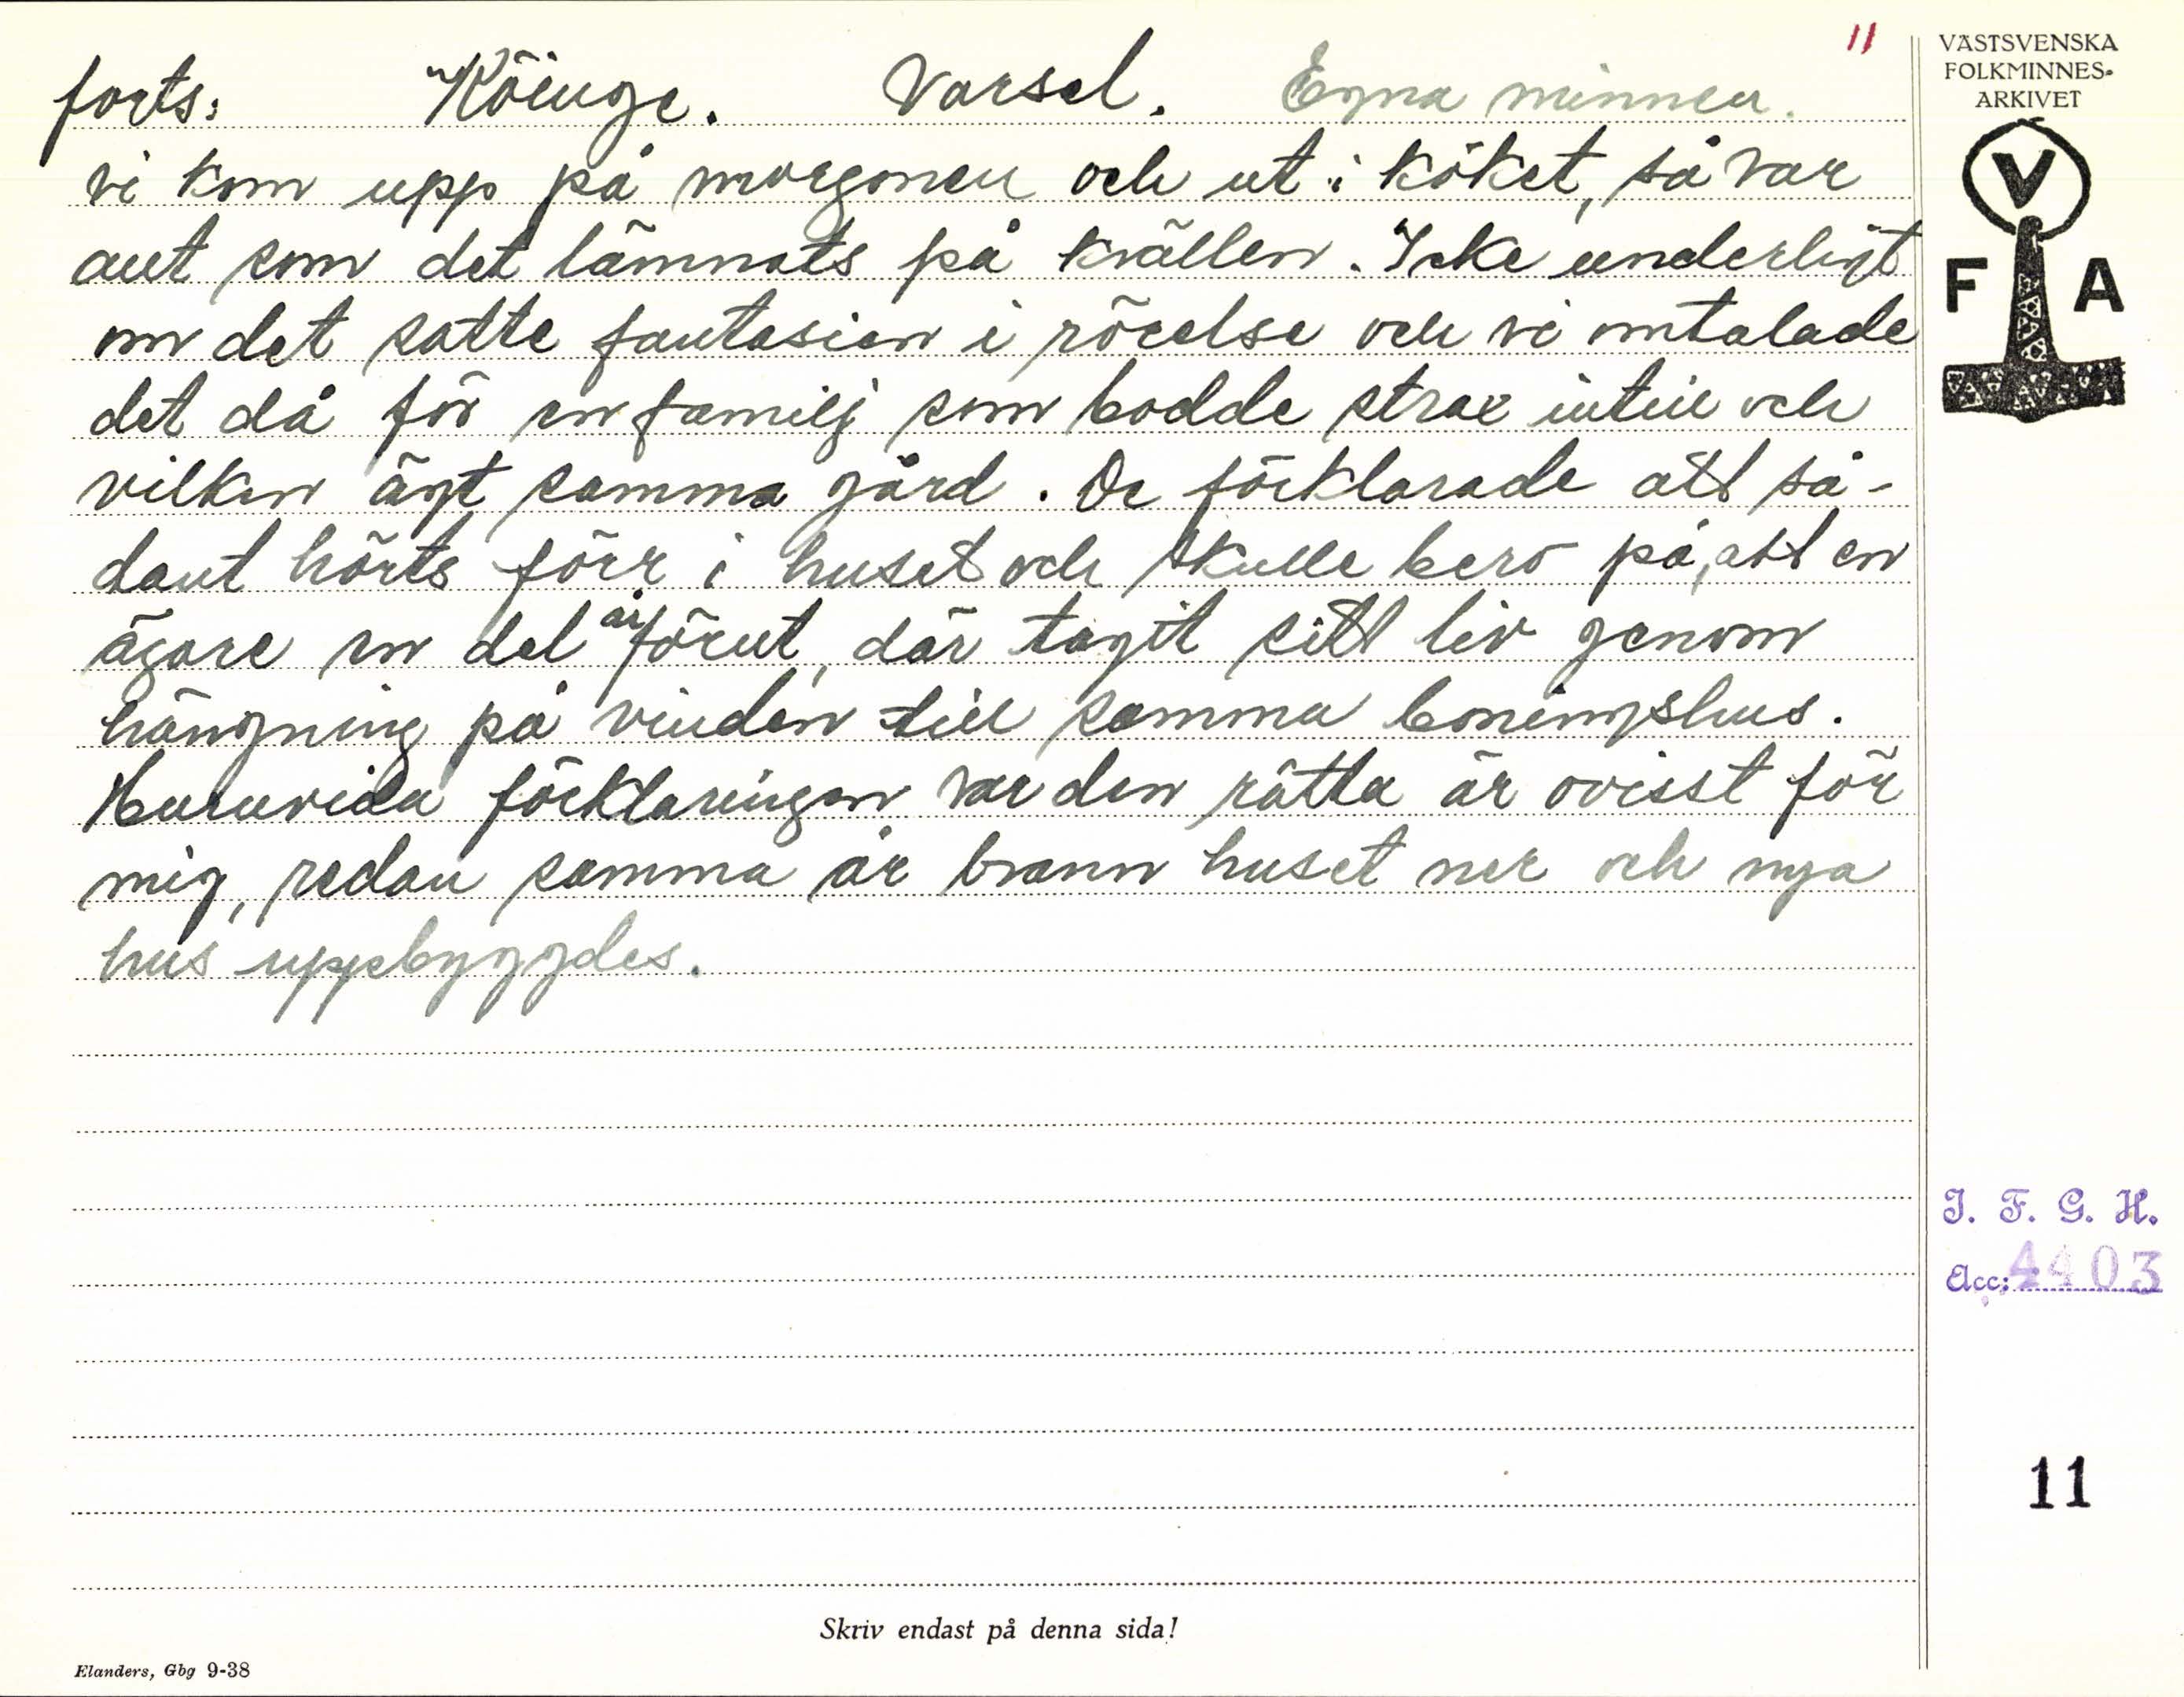 11
forts: Köinge. Varsel. Egna minnen.
vi kom upp på morgonen och ut i köket, så var
allt som det lämnats på kvällen. Icke underligt
om det satte fantasien i rörelse och vi omtalade
det då för en familj som bodde strax intill och
vilken ägt samma gård. De förklarade att så-
dant hörts förr i huset och skulle bero på, att en
ägare en del år förut, där tagit sitt liv genom
hängning på vinden till samma boningshus.
Huruvida förklaringen var den rätta är ovisst för
mig, redan samma år brann huset ner och nya
hus uppbyggdes.
VÄSTSVENSKA
FOLKMINNES-
ARKIVET
V
F A
I. F. G. H.
Acc: 4403
11
Skriv endast på denna sida!
Elanders, Gbg 9-38